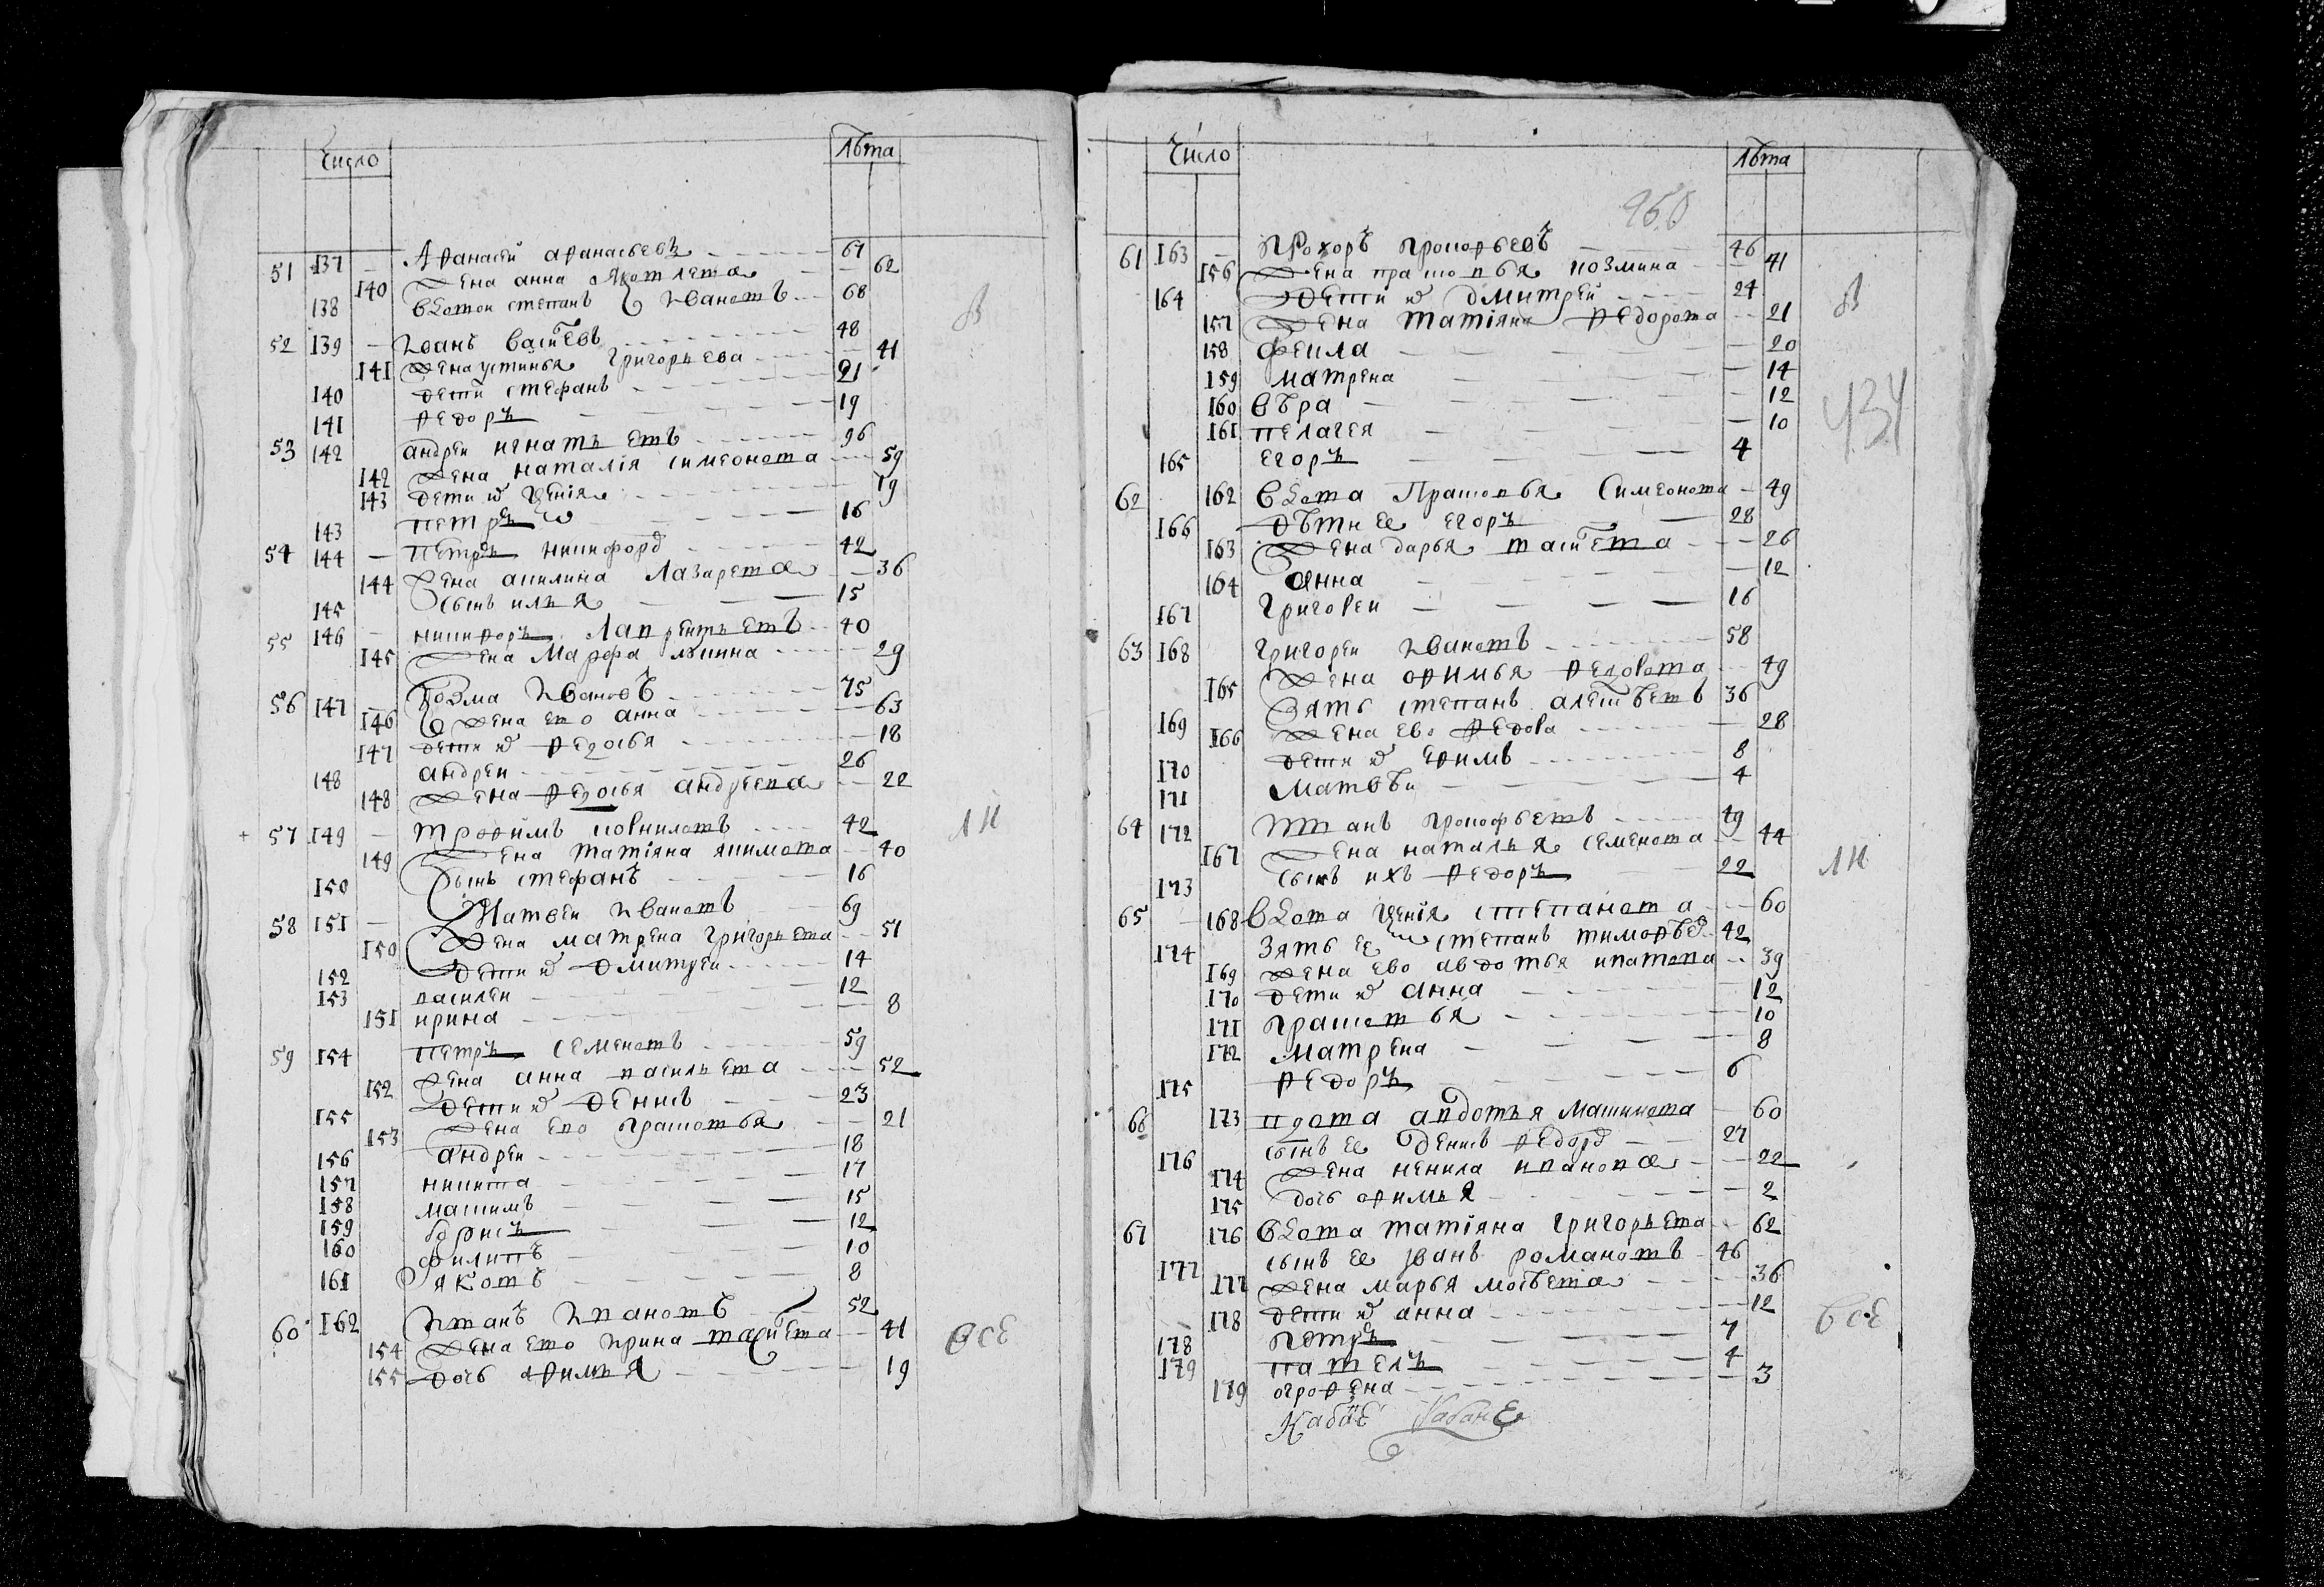 Число Лѣта
51 137 Афанасей афанасьевъ 67
140 жена анна яковлева 62
138 вдовой степанъ ивановъ 68
52 139 Иванъ васиⷧевъ 48
141 жена устинья григорьева 41
140 дети стефанъ 21
141 федоръ 19
53 142 андреи игнатьевъ 96
142 жена наталiя симеонова 59
143 дети их 19
143 петръ 16
54 144 петръ никифоро 42
144 жена акилина лазарева 36
145 сынъ илья 15
55 146 никифоръ лаврентьевъ 40
145 жена Марфа 29
56 147 козма Ивановъ 75
146 жена ево анна 63
147 дети их федосья 18
148 андреи 26
148 жена федосья андреева 22
+ 57 149 трофимъ корниловъ 42
149 жена татiяна якимова 40
150 сынъ стефанъ 16
58 151 Матвеи ивановъ 69
150 жена матрена григорьева 51
152 дети их дмитреи 14
153 василеи 12
151 ирина 8
59 154 петръ семеновъ 59
152 жена анна васильева 52
155 дети их денисъ 23
153 жена ево прасковья 21
156 андреи 18
157 никита 17
158 максимъ 15
159 борисъ 12
160 филипъ 10
161 яковъ 8
60 162 Иванъ Ивановъ 52
154 жена ево ирина васиⷧева 41
155 дочь афимья 19
В
лк
все
Число Лѣта
950
61 163 Прохоръ прокофьевъ 46
156 жена прасковья козмина 41
164 дети их дмитрей 24
157 жена татiяна федорова 21
158 фекла 20
159 матрена 14
160 вѣра 12
161 пелагея 10
165 егоръ 4
62 162 вдова Прасковья Симеонова 49
166 дѣти ее егоръ 28
163 жена дарья васиⷧева 26
164 анна 12
167 григореи 16
63 168 григореи ивановъ 58
165 жена афимья федорова 49
169 зять степанъ алексѣевъ 36
166 жена ево федора 28
170 дети их ефимъ 8
171 матвѣи 4
64 172 иванъ прокофьевъ 49
167 жена наталья семенова 44
173 сынъ ихъ федоръ 22
65 168 вдова степанова 60
174 зять ее степанъ тимофѣе 42
169 жена ево авдотья ипатова 39
170 дети их анна 12
171 прасковья 10
172 матрена 8
175 федоръ 6
66 173 вдова авдотья максимова 60
176 сынъ ее денисъ федоро 27
174 жена ненила иванова 22
175 дочь афимья 2
67 176 вдова татiяна григорьева 62
177 сынъ ее иванъ романовъ 46
177 жена марья мосѣева 36
178 дети их анна 12
178 петръ 7
179 павелъ 4
179 огрофена 3
В
434
лк
все